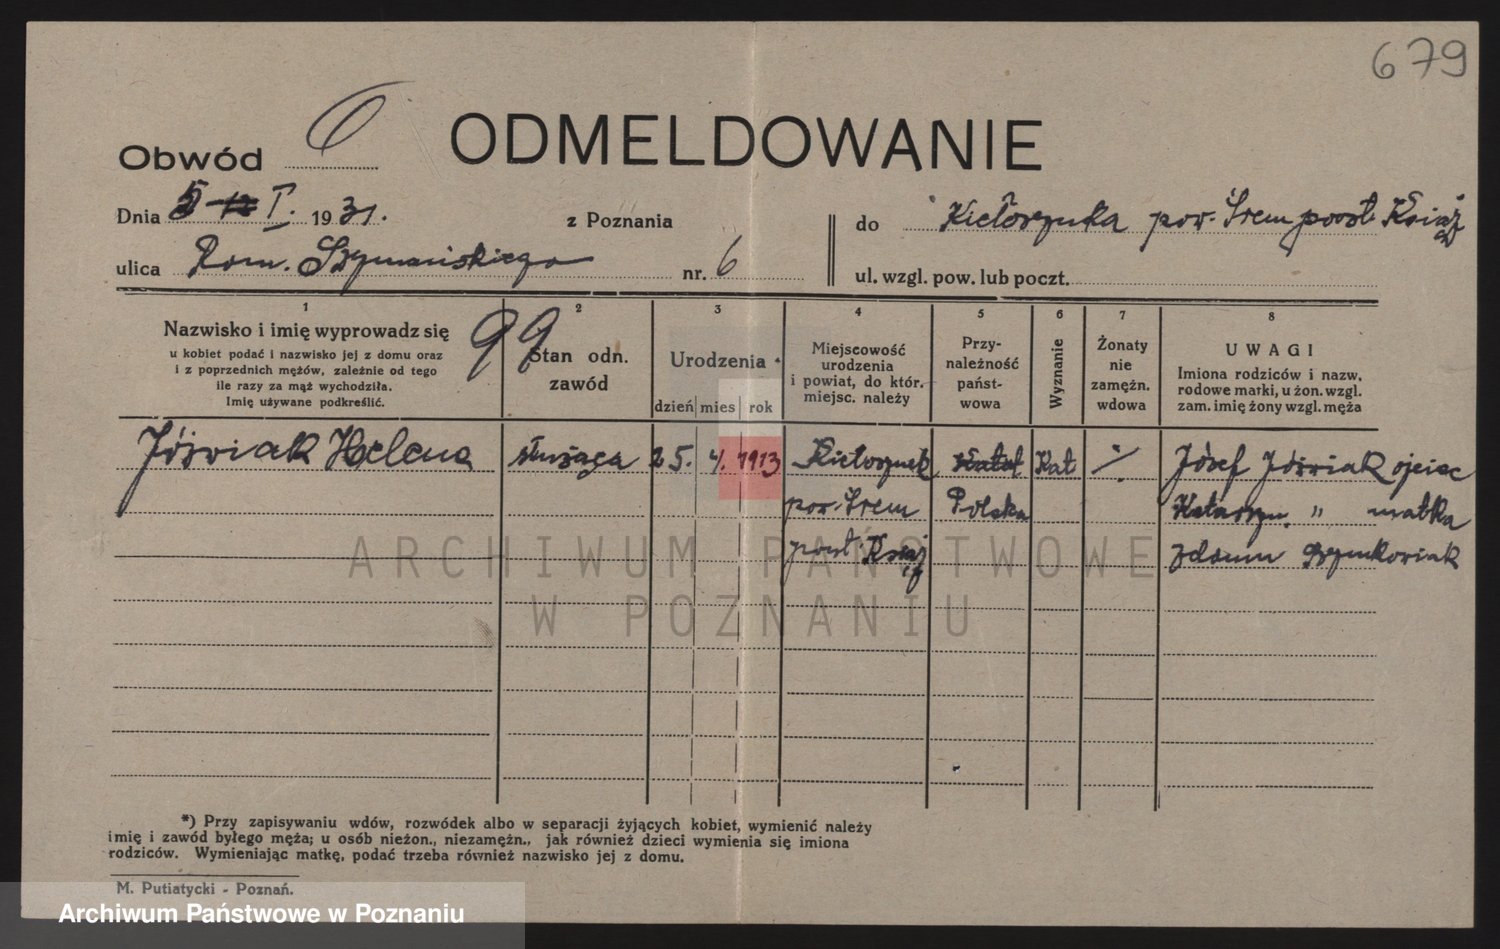 679
Obwód 6
ODMELDOWANIE
Dnia 5 I. 1931. z Poznania do Kiełczynka pow. Śrem poczt. Książ
ulica Rom. Szymańskiego nr. 6 ul. wzgl. pow. lub poczt.
99
1
Nazwisko i imię wyprowadz się
u kobiet podać i nazwisko jej z domu oraz
i z poprzednich mężów, zależnie od tego
ile razy za mąż wychodziła.
Imię używane podkreślić.
2
Stan odn.
zawód
3
Urodzenia
dzień mies rok
4
Miejscowość
urodzenia
i powiat, do któr.
miejsc. należy
5
Przy-
należność
państ-
wowa
6
Wyznanie
7
Żonaty
nie
zamężn.
wdowa
8
UWAGI
Imiona rodziców i nazw.
rodowe matki, u żon. wzgl.
zam. imię żony wzgl. męża
Jóźwiak Helena służąca 25. 4. 1913 Kiełczynek Kat ./. Józef Jóźwiak ojciec
pow. Śrem Polska Katarzyn. " matka
poczt Książ z domu Szymkowiak
ARCHIWUM PAŃSTWOWE
W POZNANIU
*) Przy zapisywaniu wdów, rozwódek albo w separacji żyjących kobiet, wymienić należy
imię i zawód byłego męża; u osób nieżon., niezamężn., jak również dzieci wymienia się imiona
rodziców. Wymieniając matkę, podać trzeba również nazwisko jej z domu.
M. Putiatycki - Poznań.
Archiwum Państwowe w Poznaniu